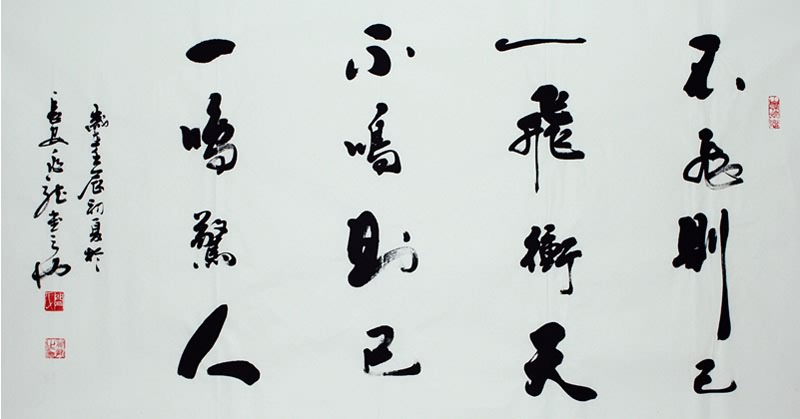 不飛則已
一飛衝天
不鳴則已
一鳴驚人
歲在壬辰初夏於
長安